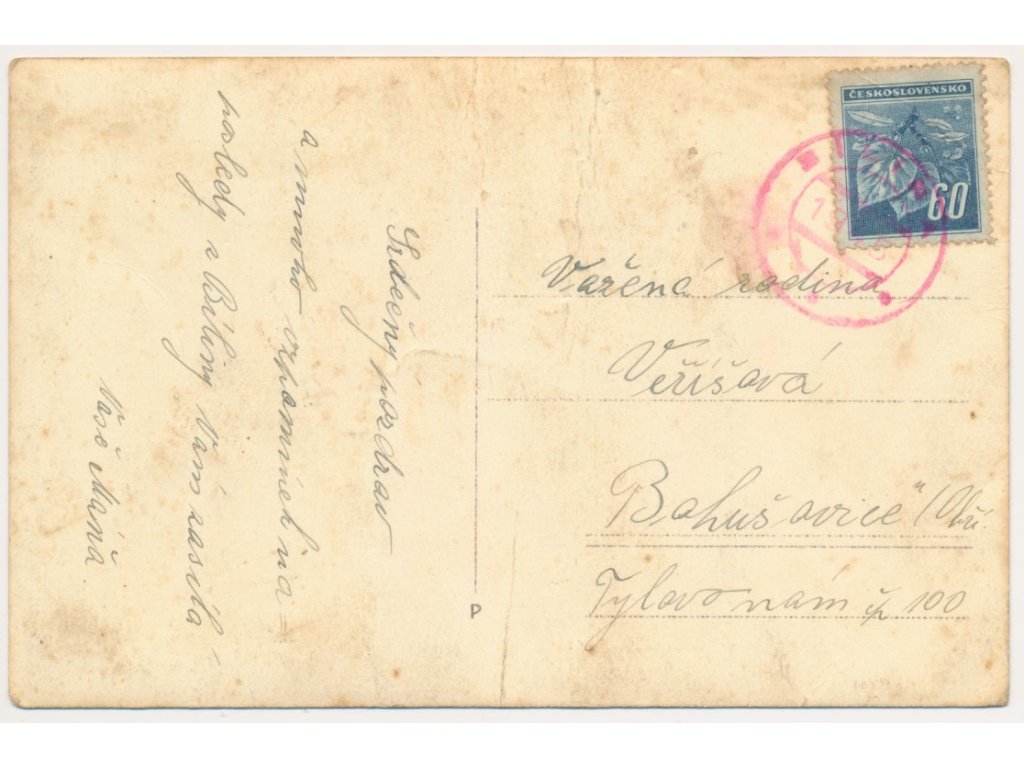 Srdečný pozdrav
a mnoho vzpomínek na =
posledy z Bíliny Vám zasílá
Vaše Máňa.
ČESKOSLOVENSKO
60
Vařená rodina
Veříšová
Bohušovice n/Ohř.
Tylovo nám čp 100
P